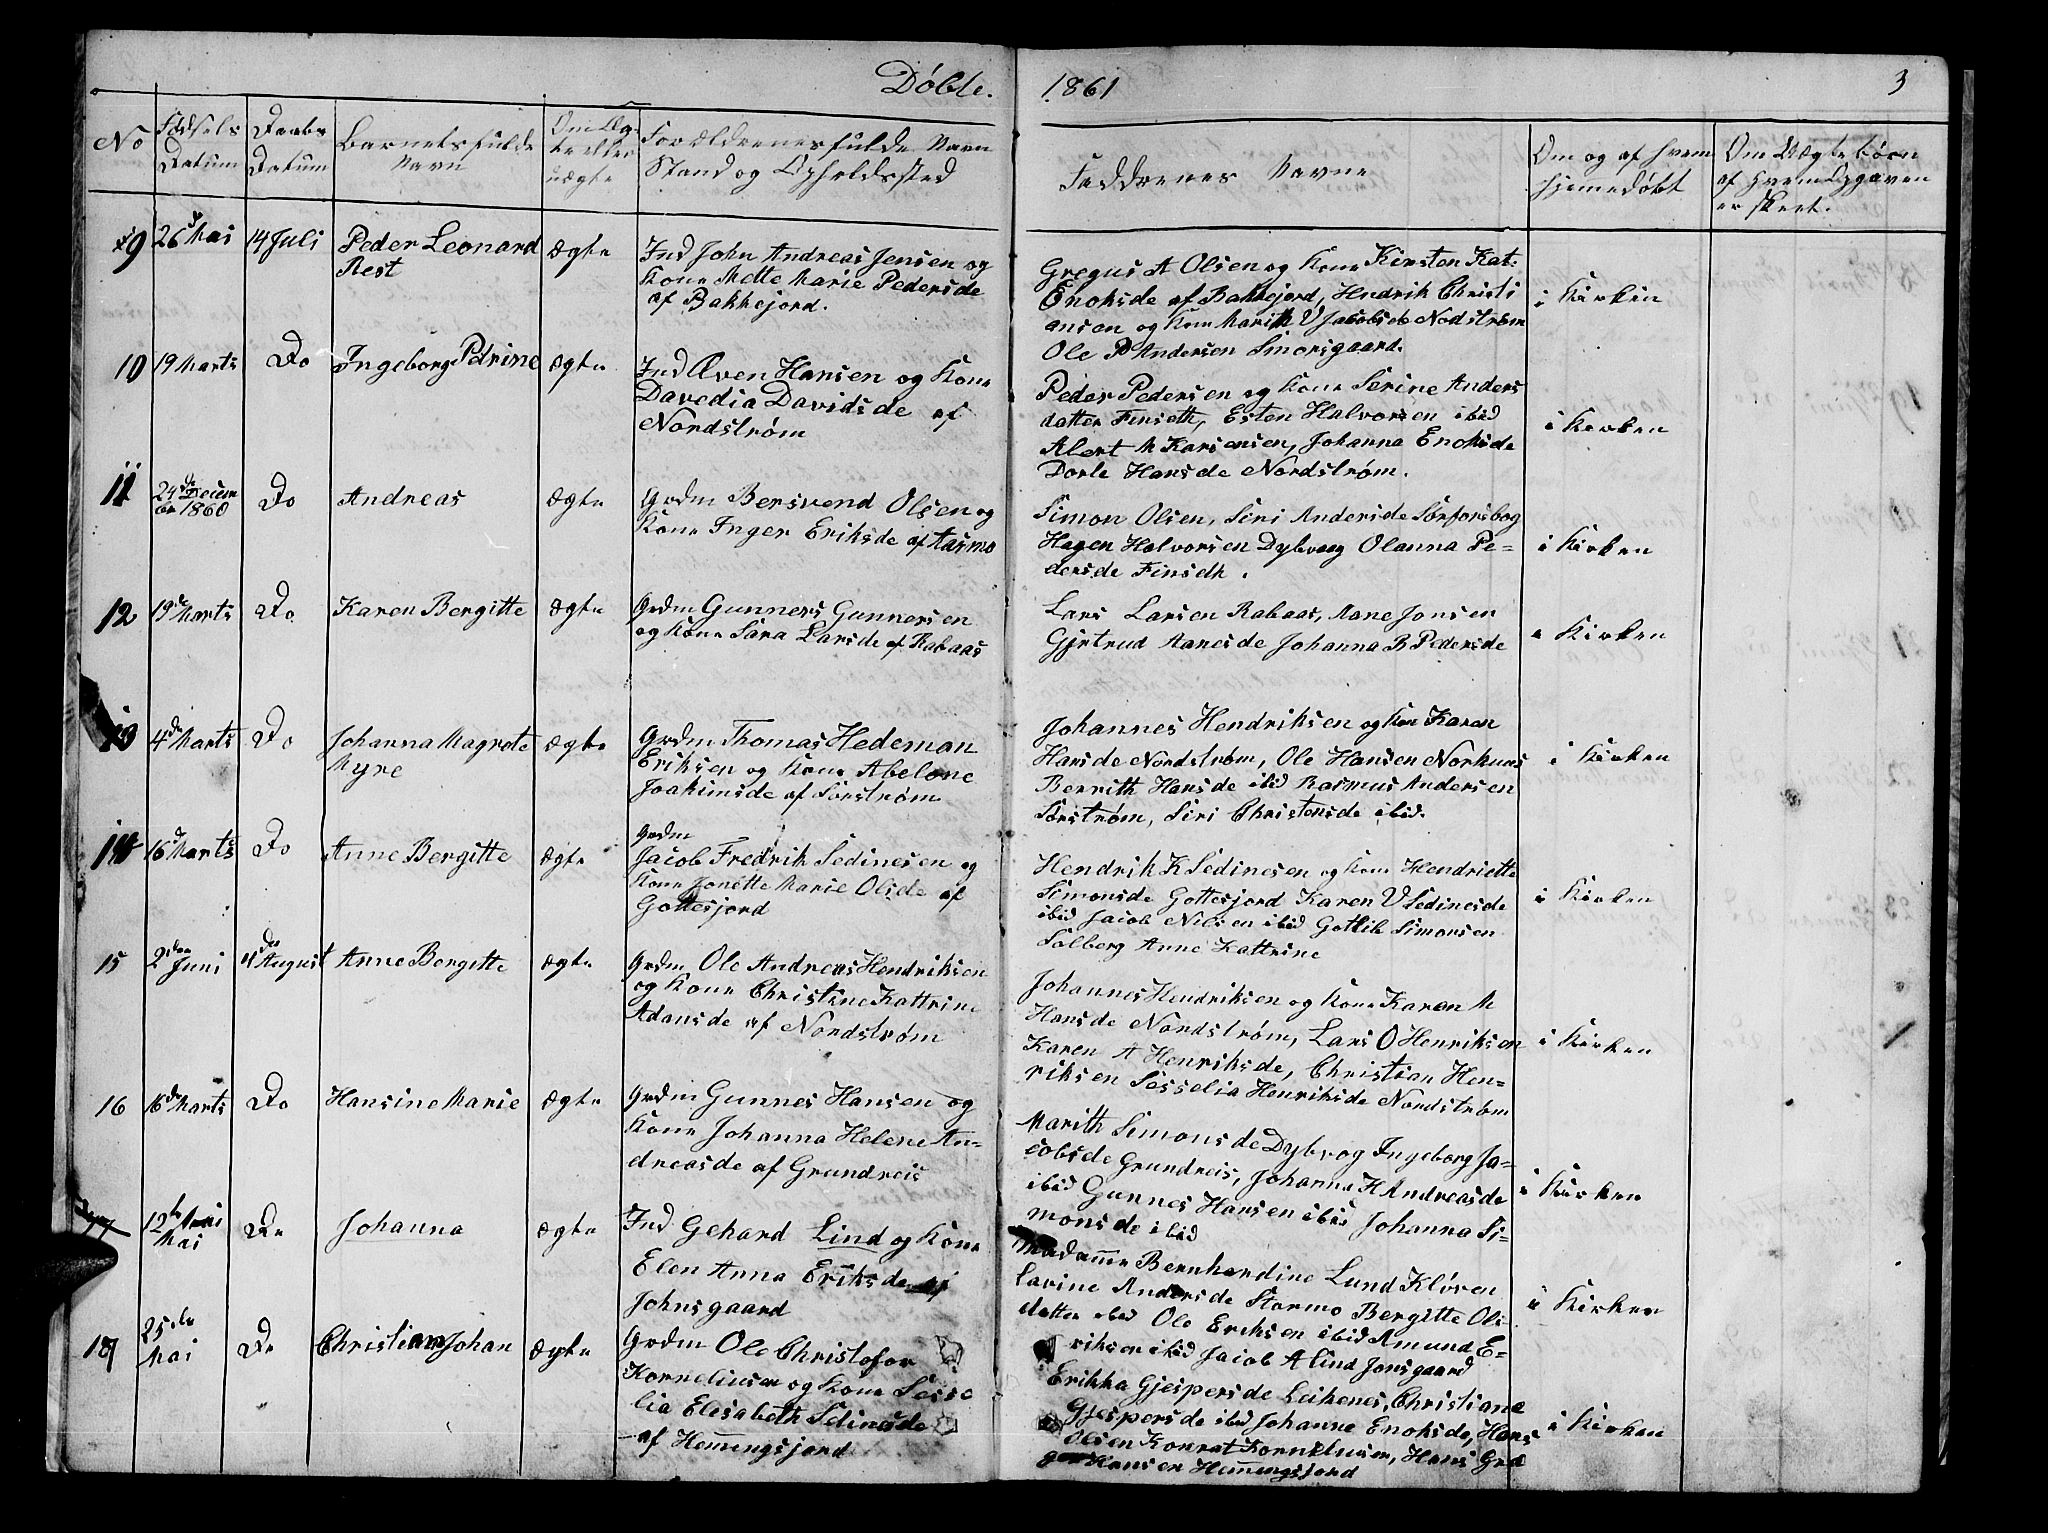 Döbte. 1861 3
No Fødsels Datum Daabs Datum Barnets fulde Navn Om Ægte eller uægte Forældrenes fulde Navn Stand og Opholdssted Faddrenes Navne Om og af hvem hjemedøbt Om Uægte børn af hvem Opgaven er skeet.
9 26 Mai 14 Juli Peder Leonard Ægte Ind John Andreas Jensen og
Rest Kone Mette Marie Pedersde
af Bakkejord.
Gregus A Olsen og Kone Kirsten Kat:
Enoksde af Bakkejord, Hendrik Christi
ansen og Kone Marith V Jacobsde Nodstrøm
Ole P Andersen Simorsgaard.
i Kirken
10 19 Marts Do Ingeborg Petrine Ægte Ind Æven Hansen og Kone
Davedia Davidsde af
Nordstrøm
Peder Pedersen og Kone Serine Anders
datter Finseth, Esten Halvorsen ibid
Alert M Karsensen, Johanna Enoksde
Dorte Hansde Nordstrøm.
i Kirken
11 24de Decem
ber 1860 Do Andreas Ægte Grdm Bersvend Olsen og
Kone Inger Eriksde af
Simon Olsen, Siri Andersde Sørforsbog
Hagen Halvorsen Dybvaag Olanna Pe=
dersde Finseth.
i Kirken
12 19de Marts Do Karen Bergitte Ægte Grdm Gunners Gunnersen
og Kone Sara Larsde af Rabaas
Lars Larsen Rabaas, Aane Jonsen
Gjertrud Aanesde Johanna B Pedersde
i Kirken
13 4de Marts Do Johanna Magrete Ægte Grdm Thomas Hedeman
Myre Eriksen og Kone Abelone
Joakimsde af Sørstrøm
Johannes Hendriksen og Kone Karen
Hansde Nordstrøm, Ole Hansen
Berrith Hansde ibid Rasmus Andersen
Sørstrøm, Siri Christensde ibid.
i Kirken
14 16de Marts Do Anne Bergitte Ægte Grdm
Jacob Fredrik Sedinesen og
Kone Jonette Marie Olsde af
Gottesjord
Hendrik K Sedinesen og Kone Hendriette
Simonsde Gottesjord Karen V Sedinesde
ibid Jacob Nilsen ibid Gotlik Simonsen
Solberg Anne Kattrine
i Kirken
15 2den Juni 4de August Anne Bergitte Ægte Grdm Ole Andreas Hendriksen
og Kone Christine Kattrine
Adamsde af Nordstrøm
Johannes Hendriksen og Kone Karen M
Hansde Nordstrøm, Lars O Henriksen
Karen A Henriksde, Christian Hen=
riksen Sesselia Henriksde Nordstrøm
i Kirken
16 16de Marts Do Hansine Marie Ægte Grdm Gunnes Hansen og
Kone Johanna Helene An=
dreasde af Grundreis
Marith Simonsde Dybvog Ingeborg Ja=
cobsde Grundreis, Johanna H Andreasde
ibid Gunnes Hansen ibid Johanna Si=
monsde ibid
i Kirken
12te
Mai Do Johanna Ægte Ind Gehard Lind og Kone
Elen Anna Eriksde af
Johnsgaard
Madamme Bernhardine Lund Kløven
Larine Andersde Stormo Bergitte Ols
datter ibid Ole Eriksen ibid Amund E=
riksen ibid Jacob A Lind Jonsgaard
i Kirken
18 25de
Mai Do Christian Johan Ægte Grdm Ole Christofor
Korneliusen og Kone Sesse
lia Elisabeth Sedinesde
af Hemingsjord
Erikka Gjespersde Leikenes, Christiane
Gjespersde ibid Johanne Enoksde, Hans
Olsen Konrat Kornelusen, Hans Gre
Hansen Hemingsjord
i Kirken